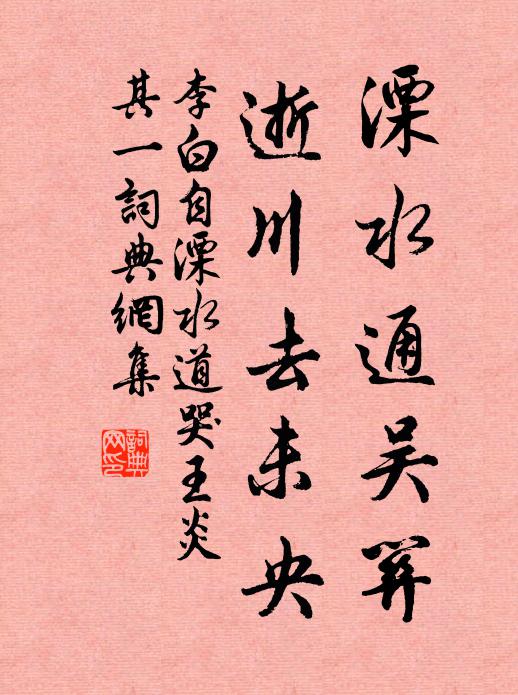 溧水通吴關
逝川去未央
李白自溧水道哭王炎
其一詞典網集
詞典網印